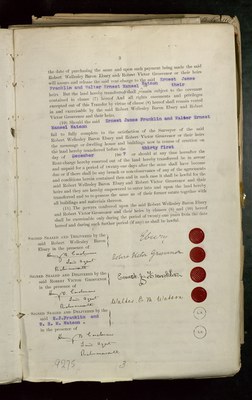 3
the date of purchasing the same and upon such payment being made the said
Robert Wellesley Baron Ebury and Robert Victor Grosvenor or their heirs
will pursue and release the said year charge to the said Ernest James
Franklin and Walter Ernest Hansel Watson their
heirs But the land hereby transferred shall remain subject to the covenant
contained in clause hereof And all rights covenants and privileges
excepted out of this Transfer by virtue of clause hereof shall remain vested
in and exercisable by the said Robert Wellesley Baron Ebury and Robert
Victor Grosvenor and their heirs.
Should the said Ernest James Franklin and Walter Ernest
Hansel Watson
fail to fully complete to the satisfaction of the Surveyor of the said
Robert Wellesley Baron Ebury and Robert Victor Grosvenor or their heirs
the messuage or dwelling house and buildings now in course of erection on
the land hereby transferred before the thirty first
day of December or should at any time hereafter the
Rent-charge hereby reserved out of the land hereby transferred be in arrear
and unpaid for a period of twenty one days after the same shall have become
due or if there shall be any breach or non-observance of any of the agreements
and conditions herein contained then and in such case it shall be lawful for the
said Robert Wellesley Baron Ebury and Robert Victor Grosvenor and their
heirs and they are hereby empowered to enter into and upon the land hereby
transferred and to re-possess the same as of their former estate together with
all buildings and materials thereon.
The powers conferred upon the said Robert Wellesley Baron Ebury
and Robert Victor Grosvenor and their heirs by clauses and hereof
shall be exercisable only during the period of twenty one years from the date
hereof and during such further period (if any) as shall be lawful.
SIGNED SEALED AND DELIVERED by the
said Robert Wellesley Baron
Ebury in the presence of
Ebury
SIGNED SEALED AND DELIVERED by the
said ROBERT VICTOR GROSVENOR
in the presence of
Robert Victor Grosvenor
Rickmansworth
SIGNED SEALED AND DELIVERED by the
said E.J.Franklin and
W. E. H. Watson
in the presence of
Ernest J. Franklin
Walter E. H. Watson
Rickmansworth
3